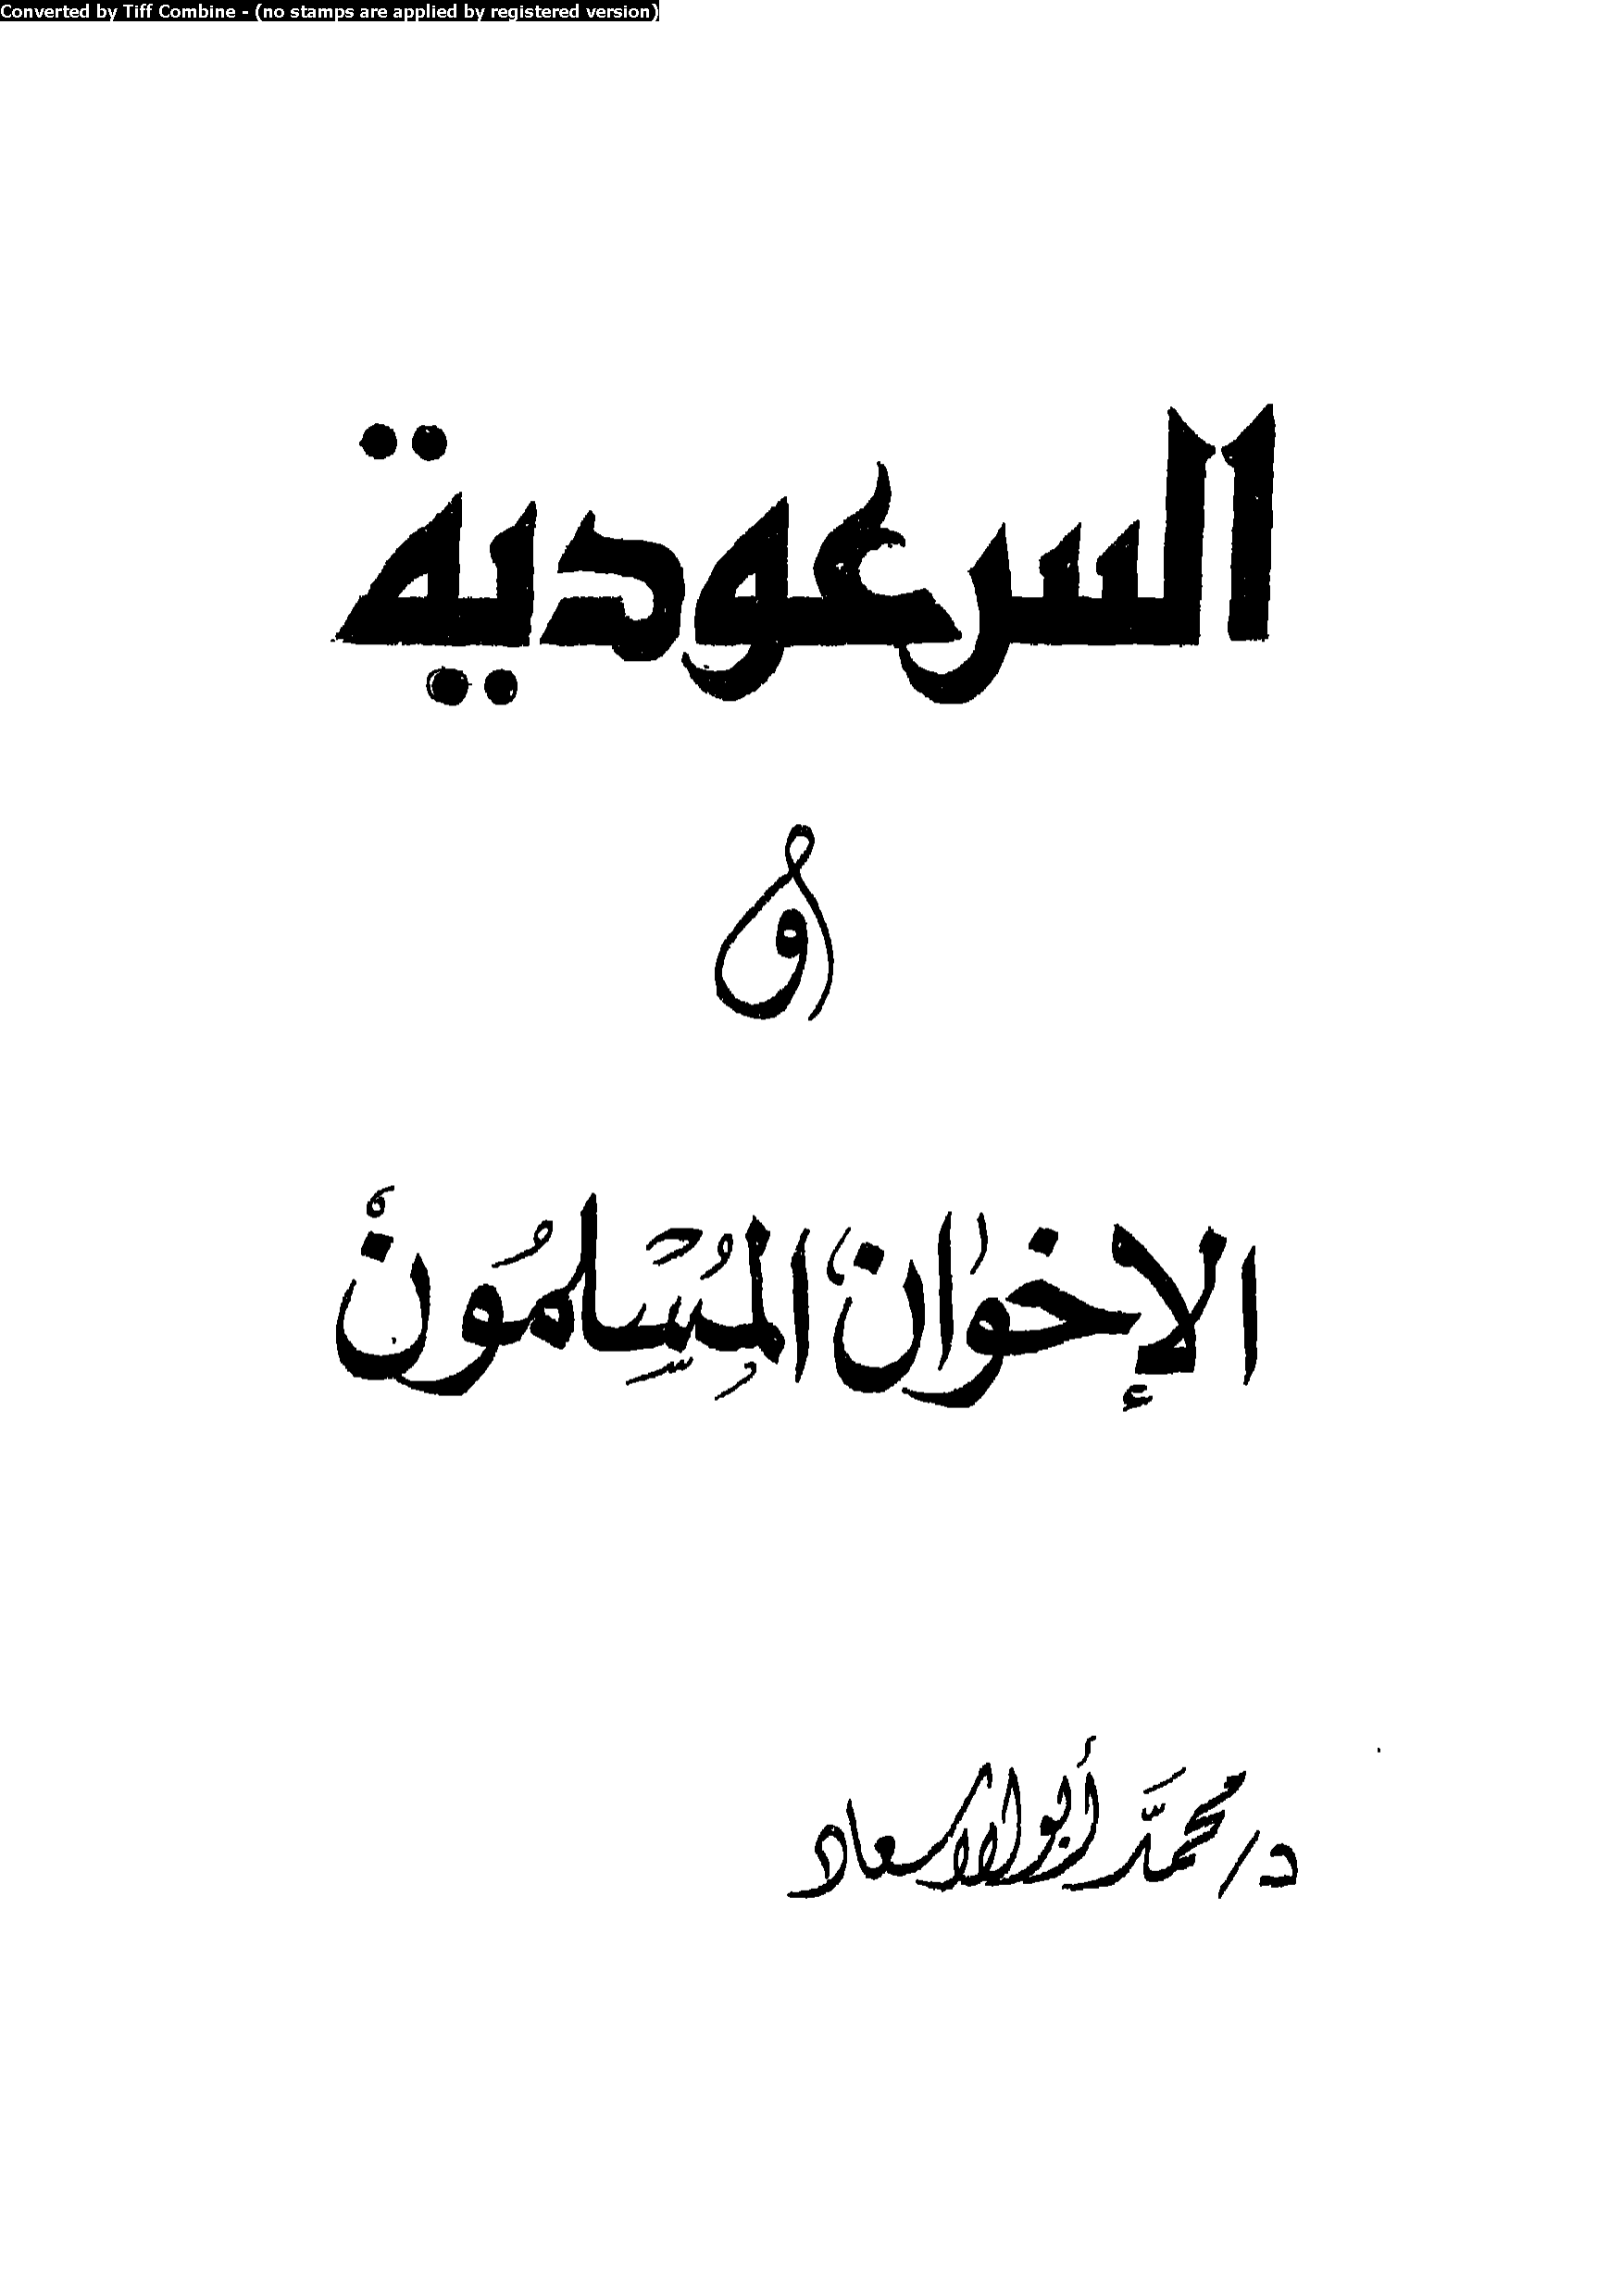 Converted by Tiff Combine - (no stamps are applied by registered version)
السعودية
و
الإخوان المسلمون
د/ محمد أبو الإسعاد